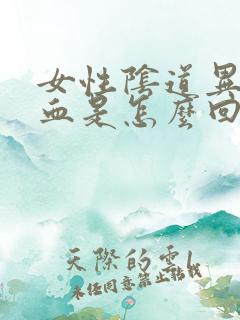 女性陰道異
血是怎麼回
天際的雲
未经同意禁止转载